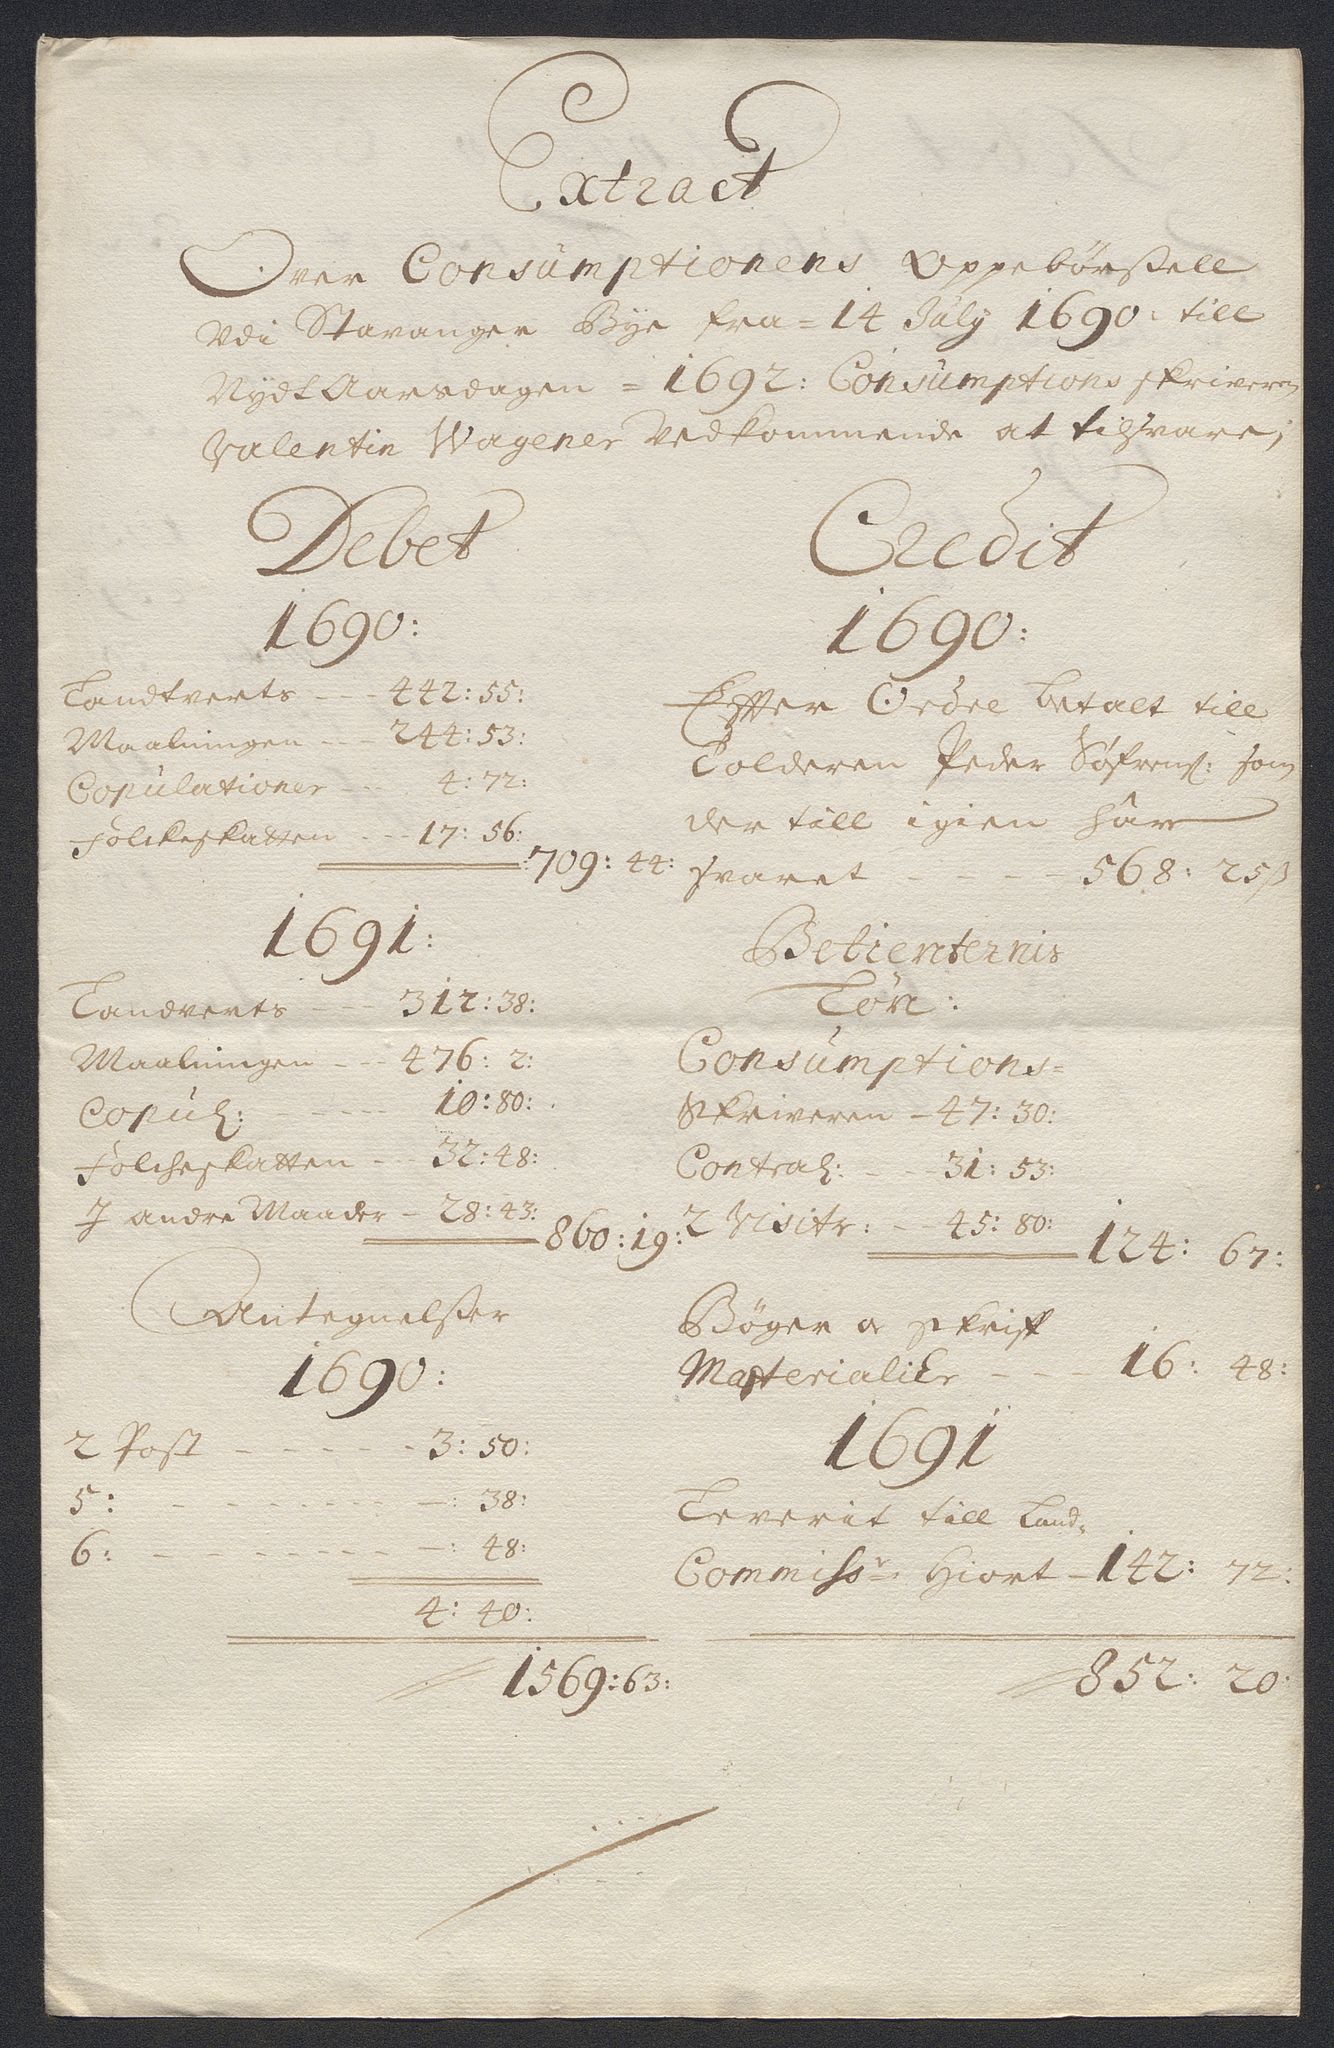 Extract
Over Consumptionens Oppebørßell
Udi Stavanger Bÿe fra = 14 Julÿ 1690: till
Nÿdt Aarsdagen = 1692: Consumptions skriveren
Valentin Wagener Vedkommende at tilsvare;
Debet
1690:
Landtverts --- 442: 55:
Maalningen --- 244: 53:
Copulationer --- 4: 72:
Folckeskatten --- 17: 56:
709: 44:
1691:
Landverts --- 312: 38:
Maalningen --- 476: 2:
Copul: ---- 10: 80:
Folcheskatten --- 32: 48:
J andre Maader - 28: 43:
860: 19:
Antegnelßer
1690:
2 Post - - - - - - 3: 50:
5: - - - - - - - - - -: 38:
6: - - - - - - - - - -: 48:
4: 40:
1569: 63:
Credit
1690:
Effter Ordre betalt till
Tolderen Peder Søfrens: som
der till igien har
svaret - - - - - 568: 25ß
Betienternis
Løn:
Consumptions=
Skriveren - 47: 30:
Control: --- 31: 53:
2 Visitr: --- 45: 80:
124: 67:
Bøger oc skrif
Materialier - - - 16: 48:
1691
Leverit till Land=
Commissr: Hiort - 142: 72:
852: 20: